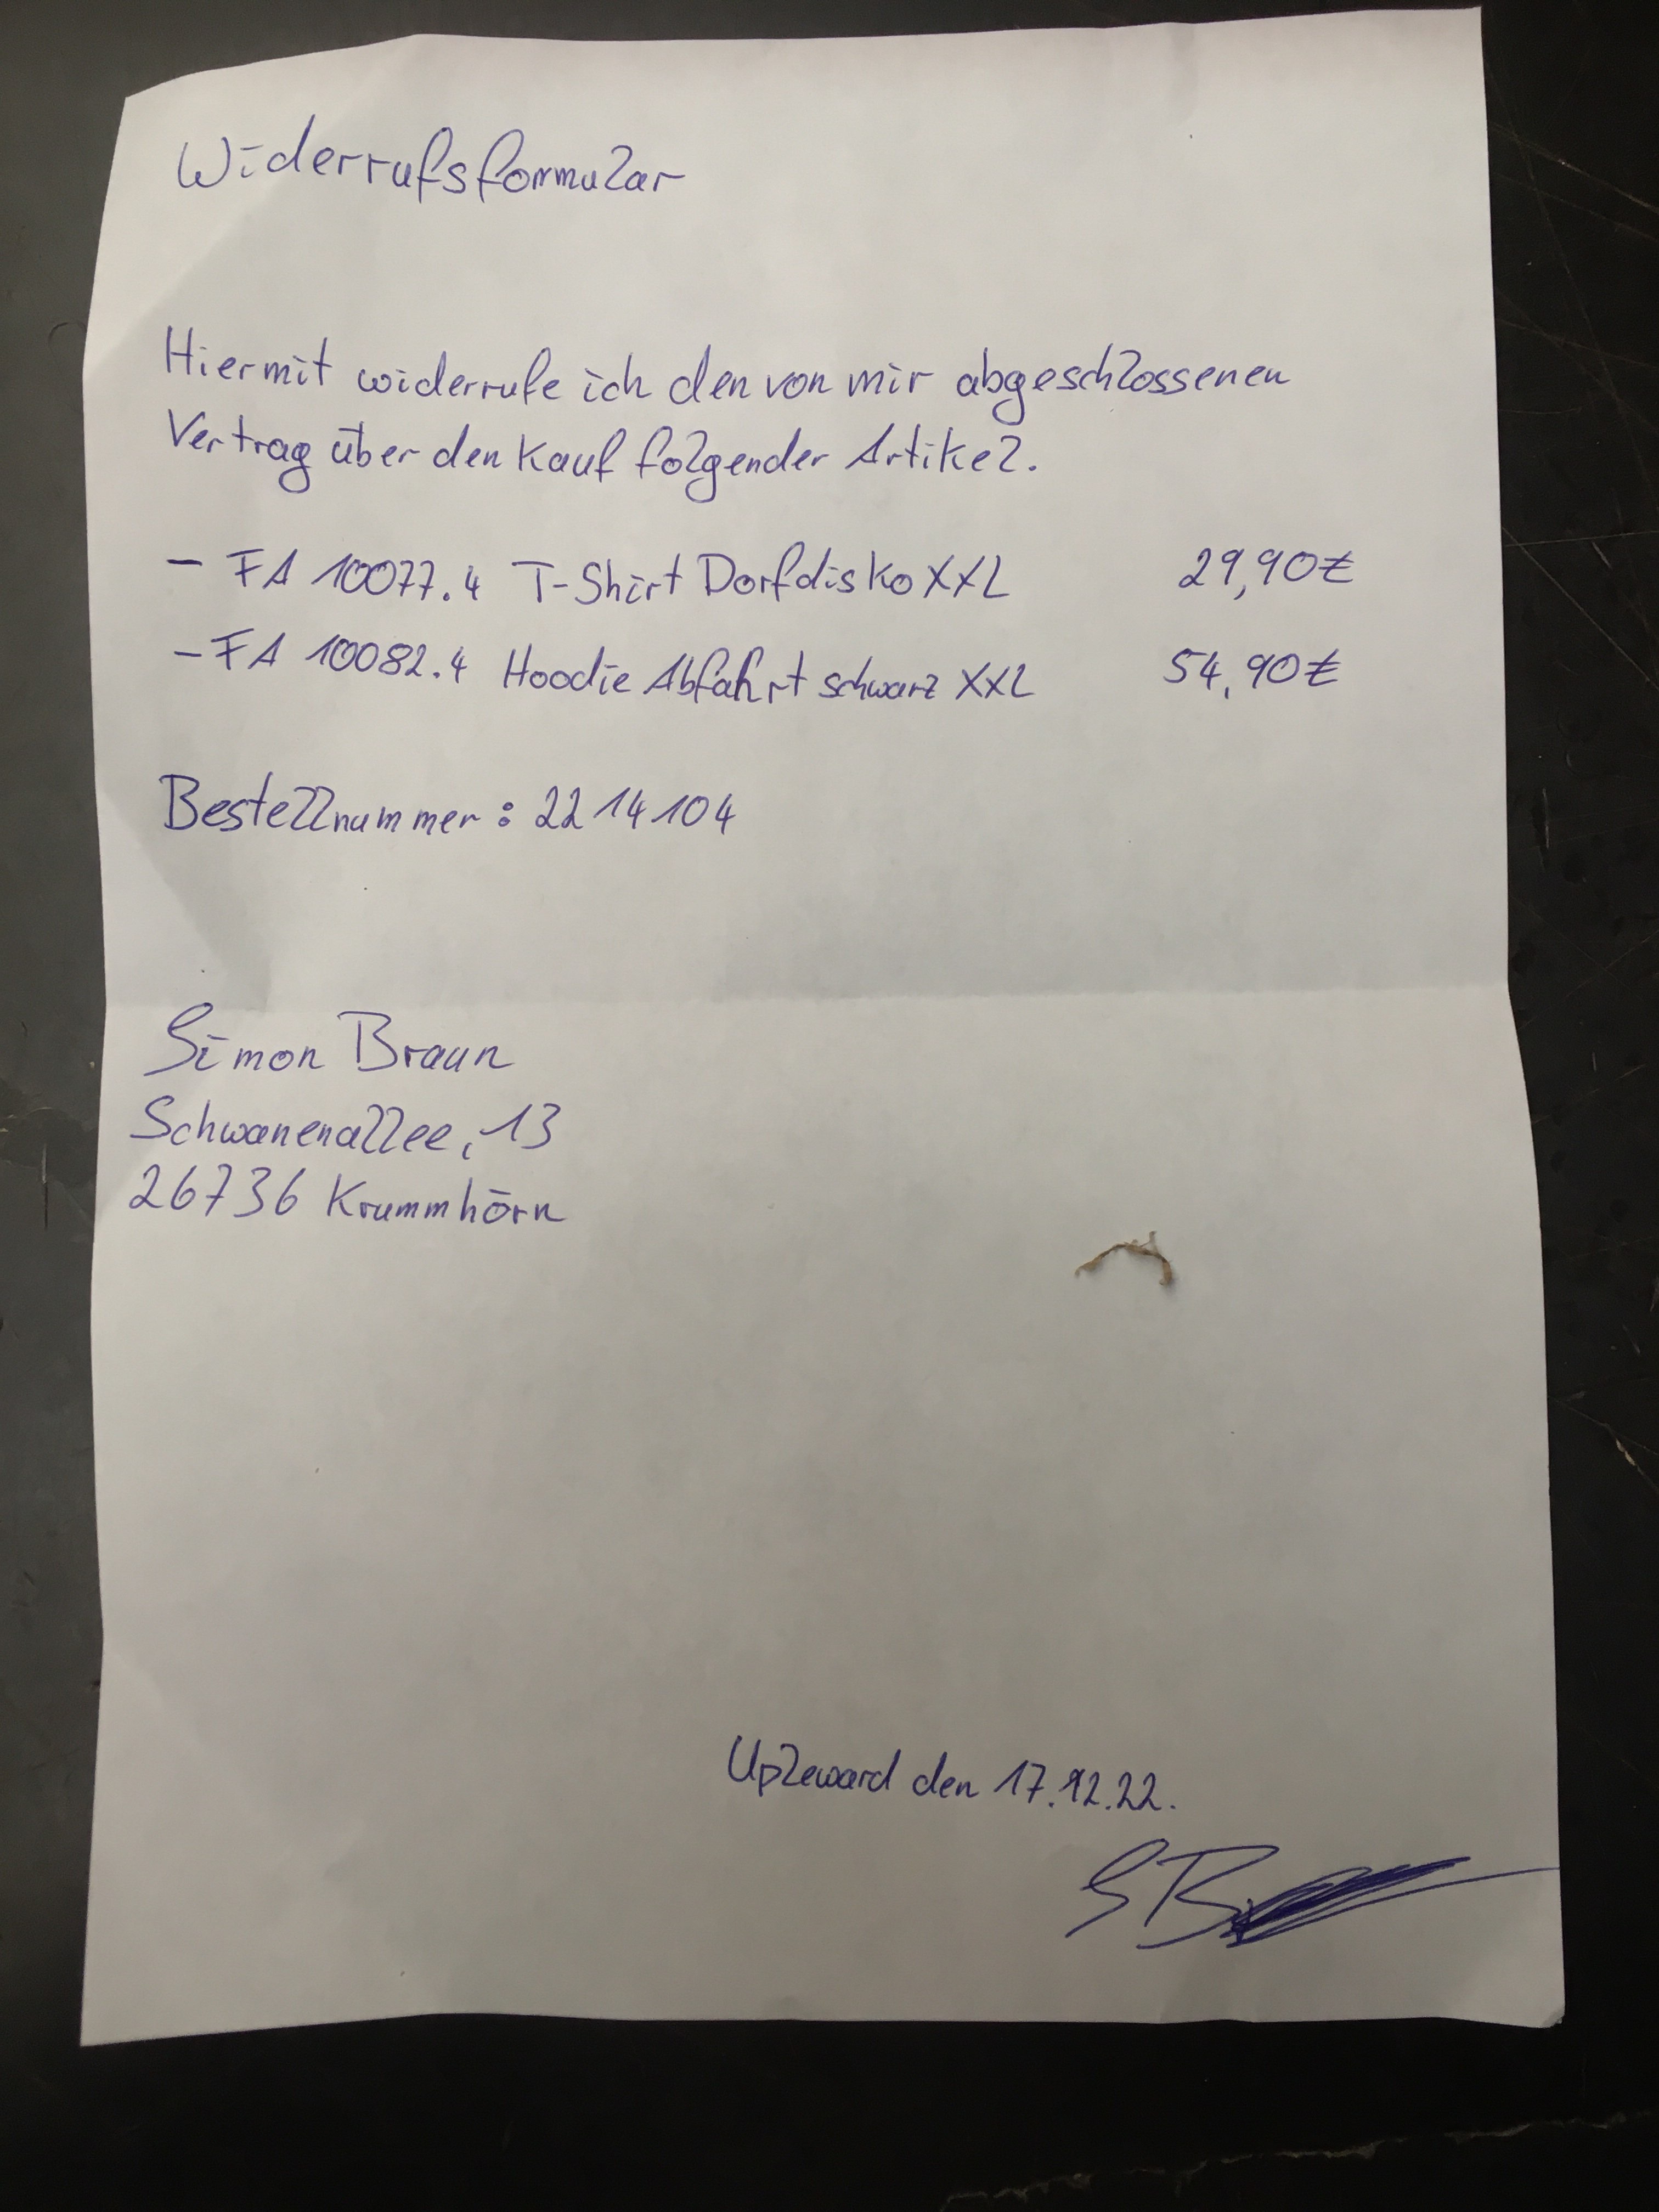 Widerrufsformular
Hiermit widerrufe ich den von mir abgeschlossenen
Vertrag über den Kauf folgender Artikel.
- FA 10077.4 T-Shirt Dorfdisko XXL 29,90€
- FA 10082.4 Hoodie Abfahrt schwarz XXL 54,90€
Bestellnummer: 2214104
Simon Braun
Schwanenallee, 13
26736 Krummhörn
Upleward den 17.12.22.